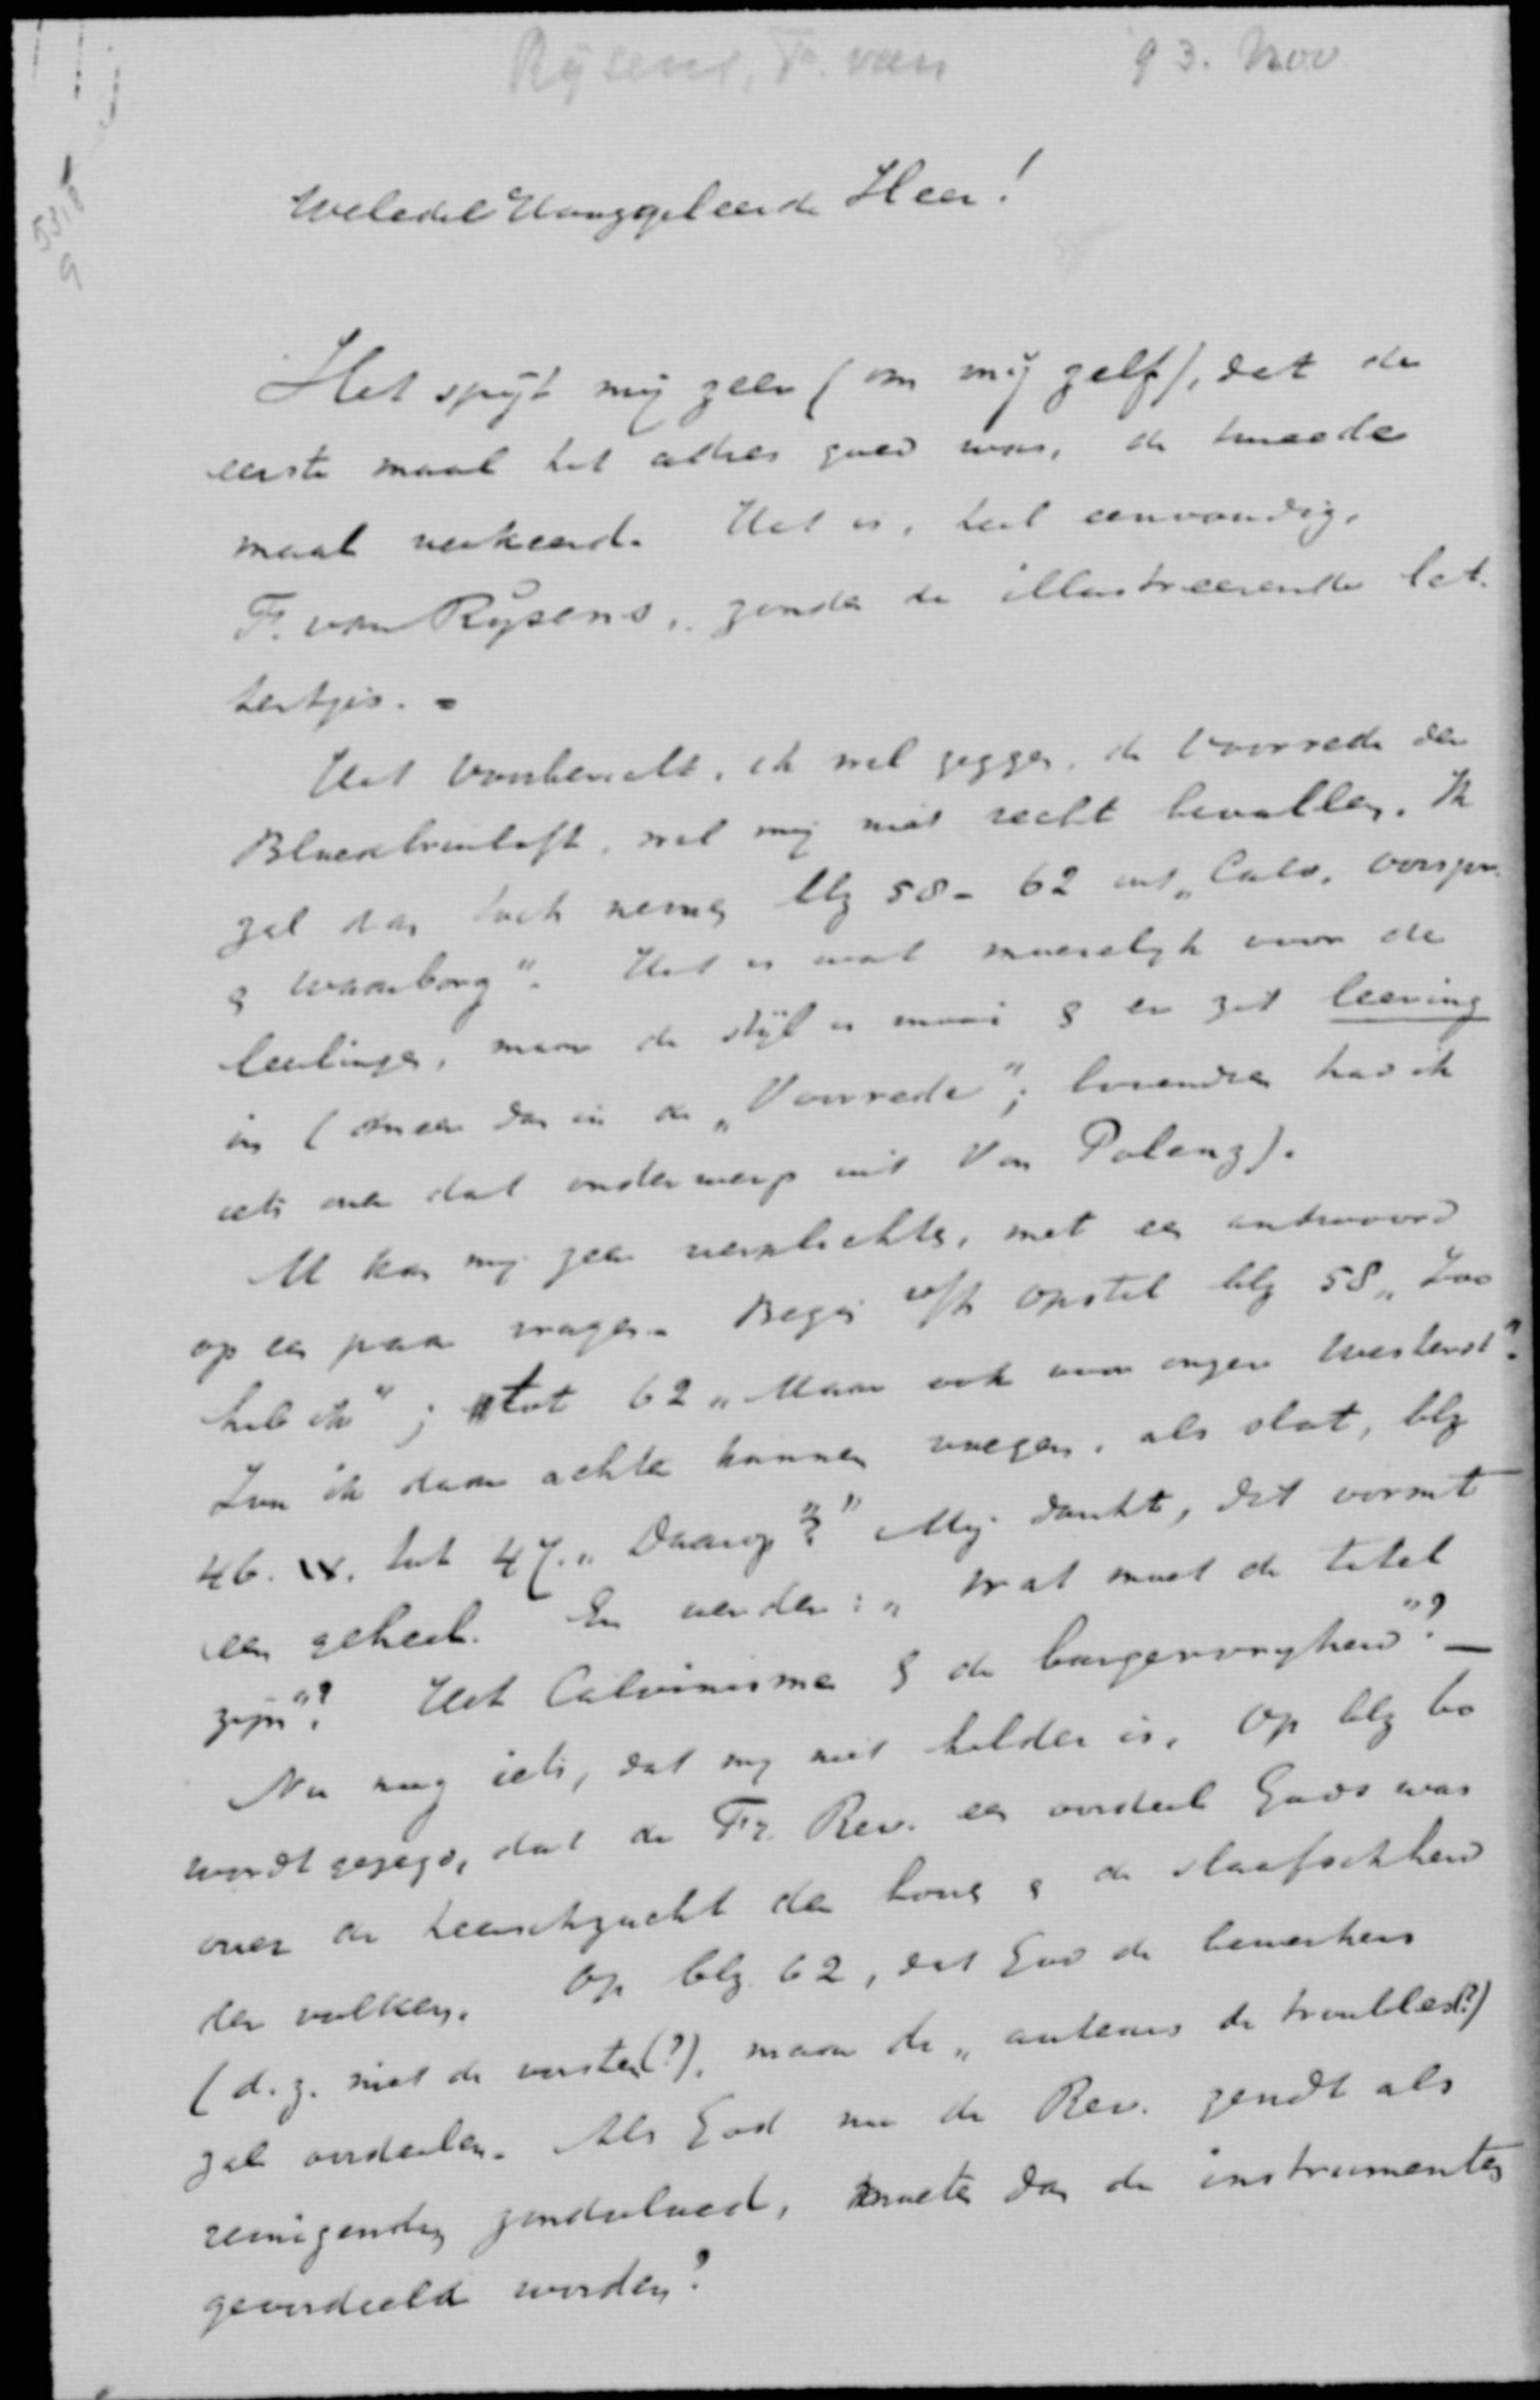 Rijsens, F. van '93. Nov
5318
9
Weledel Hooggeleerde Heer!
Het spijt mij zeer (om mij zelf), dat de
eerste maal het adres goed was, de tweede
maal verkeerd. Het is, heel eenvoudig,
F. van Rijsens, zonder de illustreerende let-
tertjes. -
Het voorbericht, ik wil zeggen, de Voorrede der
Bloembruiloft, wil mij niet recht bevallen. Ik
zal dan toch nemen blz 58 - 62 uit „Calv. oorspr.
& waarborg". Het is wat moeielijk voor de
leerlingen, maar de stijl is mooi & er zit leering
in (meer dan in de „Voorrede"; bovendien had ik
iets over dat onderwerp uit Von Polenz).
U kan mij zeer verplichten, met een antwoord
op een paar vragen. Begin v/h opstel blz 58 „Zoo
heb ik"; tot 62 „Maar ook voor ongen
Zou ik daar achter kunnen voegen, als slot, blz
46. IX. tot 47. „Daarop"? Mij dunkt, dit vormt
een geheel. En verder: „Wat moet de titel
zijn"? Het Calvinisme & de burgervrijheid"? —
Nu nog iets, dat mij niet helder is. Op blz 60
wordt gezegd, dat de Fr. Rev. een oordeel Gods was
over de heerschzucht der & de slaafschheid
der volken. Op blz. 62, dat God de bewerkers
(d. z. niet de vorsten(?), maar de „auteurs de troubles(?)
zal oordeelen. Als God nu de Rev. zendt als
reinigenden zondvloed, moeten dan de instrumenten
geoordeeld worden?